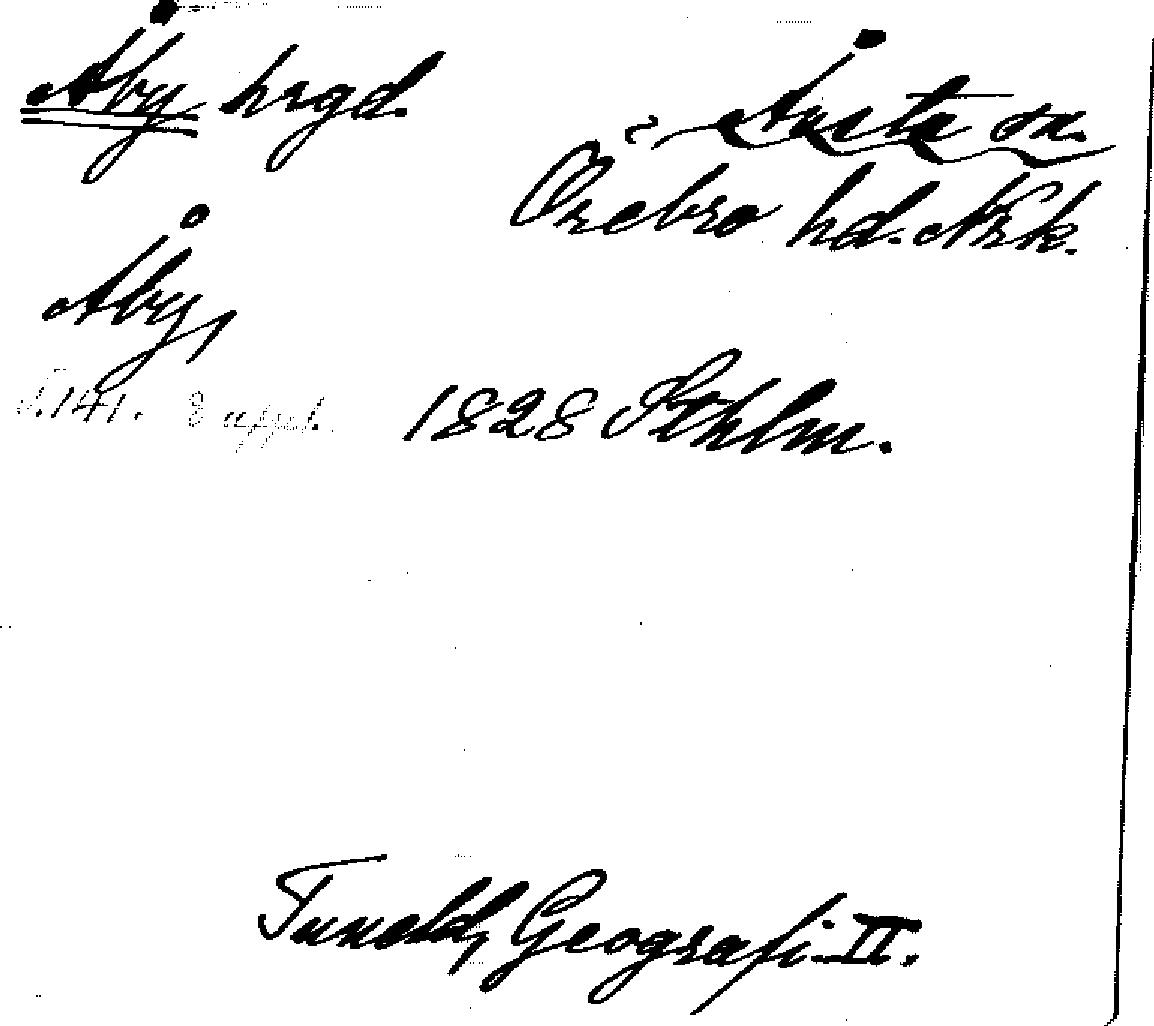 Åby hrgd.
Ånsta sn.
Örebro hd. Nrk.
Åby,
s. 141. 8 uppl. 1828 Sthlm.
Tuneld, Geografi. II.